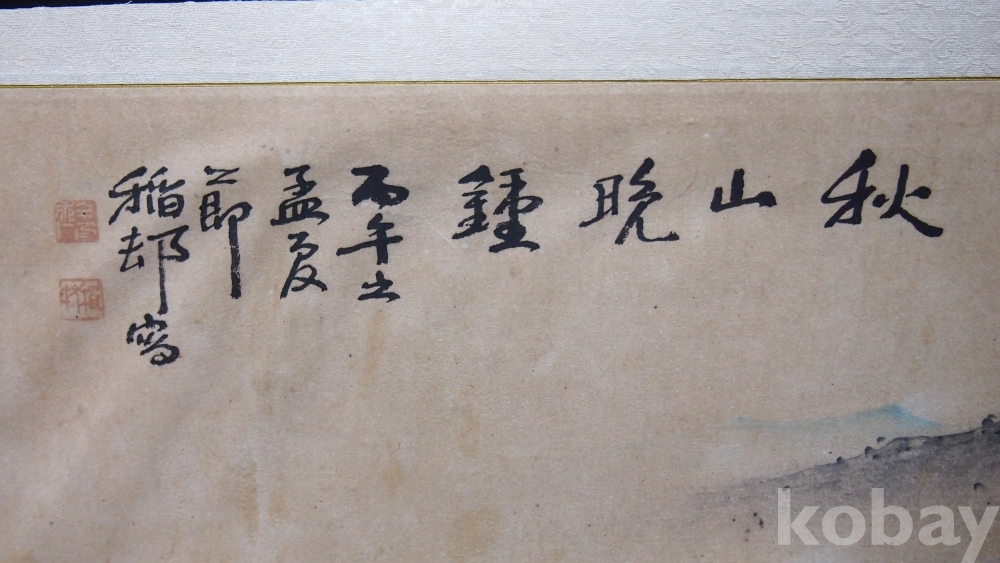 秋山晩鍾
丙午之
孟夏
節
稲邨寫
kobay